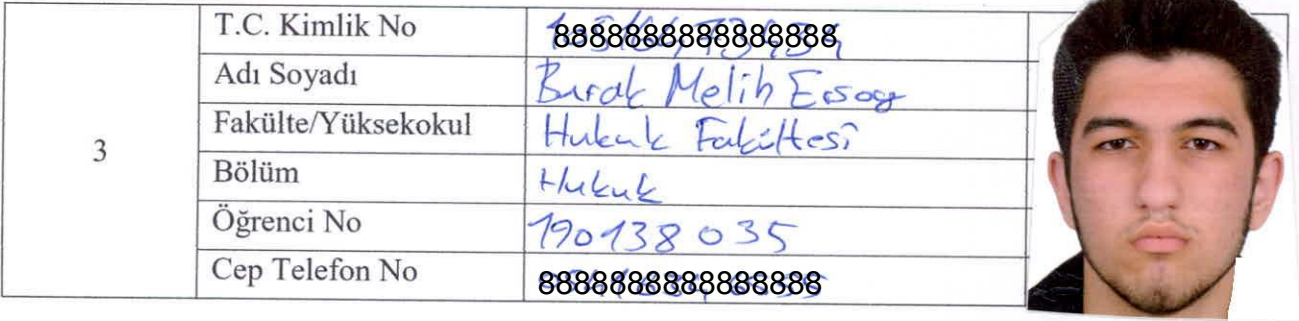 3
T.C. Kimlik No 8888888888888888
Adı Soyadı Burak Melih Ersoy
Fakülte/Yüksekokul Hukuk Fakültesi
Bölüm Hukuk
Öğrenci No 190138035
Cep Telefon No 8888888888888888